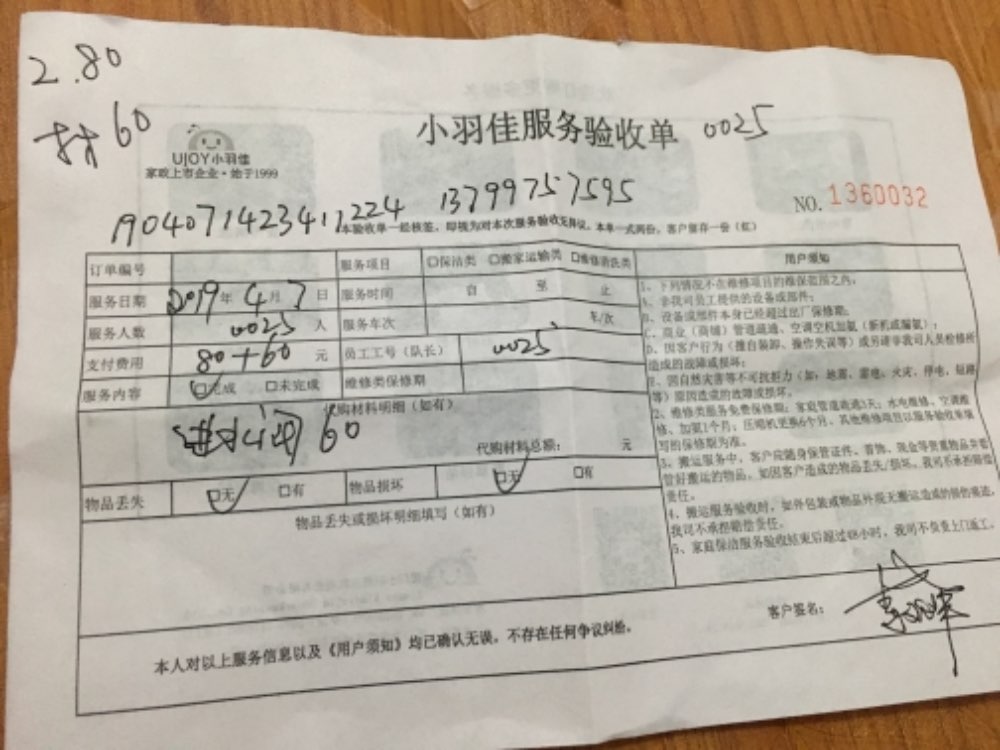 2.80
材60
UJOY小羽佳
家政上市企业·始于1999
小羽佳服务验收单 0025
NO. 1360032
1904071423417224 13799757595
本验收单一经核签，即视为对本次服务验收无异议。本单一式两份，客户留存一份（红）
订单编号 服务项目 □保洁类 □搬家运输类 □维修清洗类
服务日期 2019年4月7日 服务时间 自 至 止
服务人数 0025 人 服务车次 车/次
支付费用 80+60 元 员工工号（队长） 0025
服务内容 □完成 □未完成 维修类保修期
代购材料明细（如有）
进水阀 60
代购材料总额： 元
物品丢失 □无 □有 物品损坏 □无 □有
物品丢失或损坏明细填写（如有）
用户须知
1、下列情况不在维修项目的维保范围之内。
A、非我司员工提供的设备或部件；
B、设备或部件本身已经超过出厂保修期；
C、商业（商铺）管道疏通、空调空机加氨（新机或漏氨）；
D、因客户行为（擅自装卸、操作失误等）或另请非我司人员检修所
造成的故障或损坏；
E、因自然灾害等不可抗拒力（如，地震、雷电、火灾、停电、短路
等）原因造成的故障或损坏。
2、维修类服务免费保修期：家庭管道疏通3天；水电维修、空调维
修、加氨1个月；压缩机更换6个月、其他维修项目以服务验收单填
写的保修期为准。
3、搬运服务中，客户应随身保管证件、首饰、现金等贵重物品并看
管好搬运的物品，如因客户造成的物品丢失/损坏，我司不承担赔偿
责任。
4、搬运服务验收时，如外包装或物品外观无搬运造成的损伤痕迹，
我司不承担赔偿责任。
5、家庭保洁服务验收结束后超过48小时，我司不负责上门返工。
客户签名：
本人对以上服务信息以及《用户须知》均已确认无误，不存在任何争议纠纷。